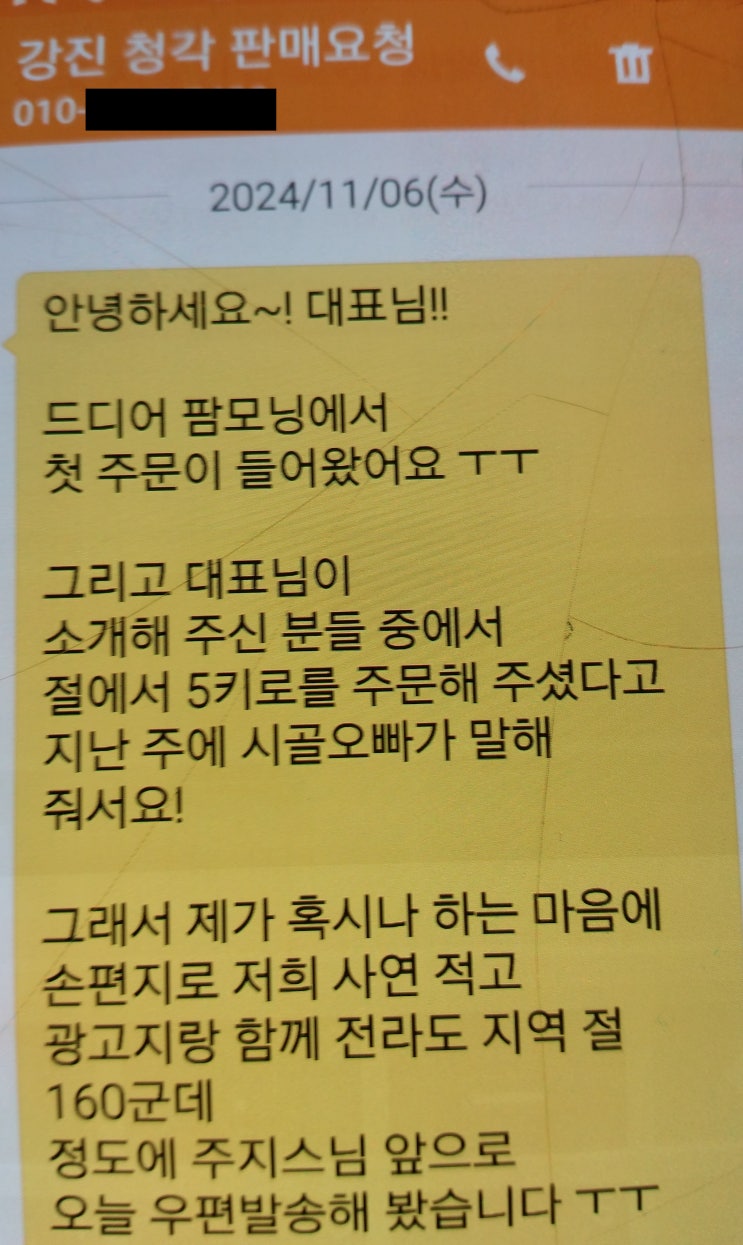 강진 청각 판매요청
010-
2024/11/06(수)
안녕하세요~! 대표님!!
드디어 팜모닝에서
첫 주문이 들어왔어요 ㅜㅜ
그리고 대표님이
소개해 주신 분들 중에서
절에서 5키로를 주문해 주셨다고
지난 주에 시골오빠가 말해
줘서요!
그래서 제가 혹시나 하는 마음에
손편지로 저희 사연 적고
광고지랑 함께 전라도 지역 절
160군데
정도에 주지스님 앞으로
오늘 우편발송해 봤습니다 ㅜㅜ